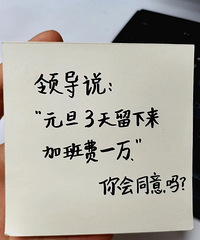 领导说：
“元旦3天留下来
加班费一万”
你会同意吗？